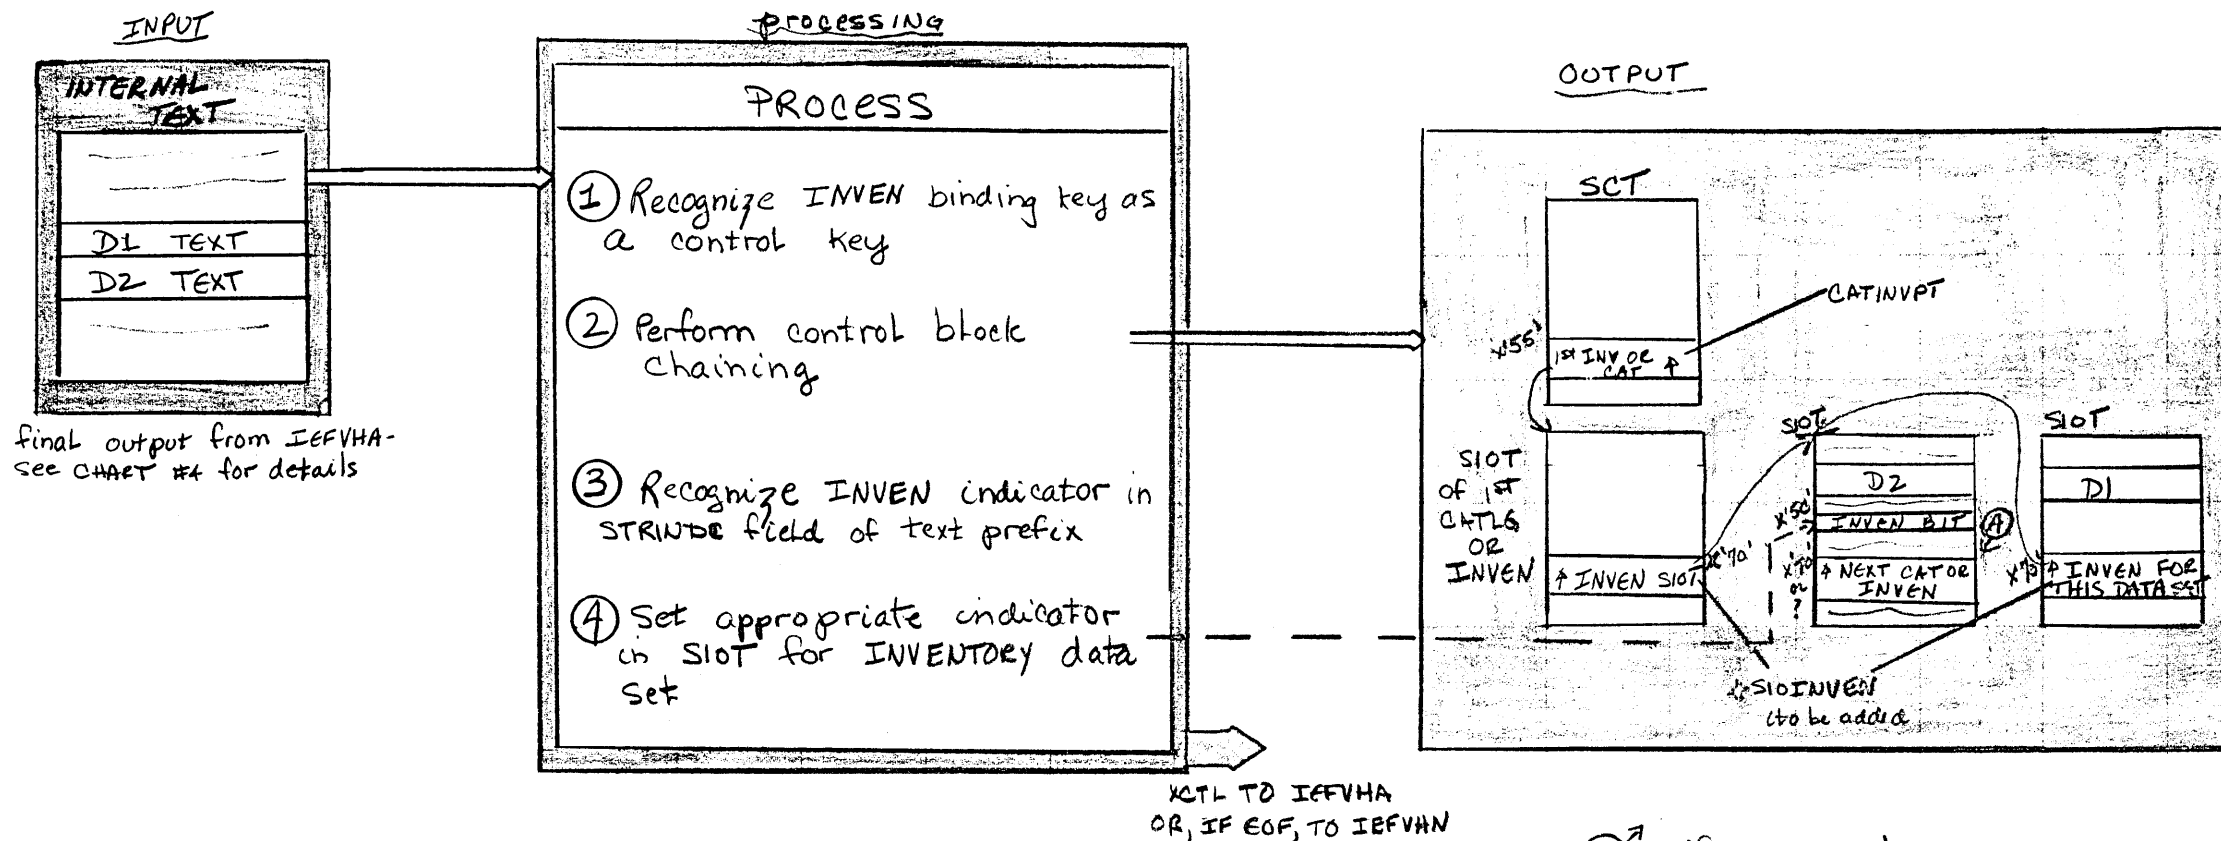 INPUT
INTERNAL
TEXT
D1 TEXT
D2 TEXT
final output from IEFVHA-
see CHART #4 for details
processING
PROCESS
① Recognize INVEN binding key as
a control key
② Perform control block
chaining
③ Recognize INVEN indicator in
STRINDC field of text prefix
④ Set appropriate indicator
in SIOT for INVENTORY data
set
XCTL TO IEFVHA
OR, IF EOF, TO IEFVHN
OUTPUT
SCT
CATINVPT
X'55'
1st INV OR
CAT ↑
SIOT
OF 1ST
CATLG
OR
INVEN
↑ INVEN SIOT
X'70'
SIOT
D2
X'50'
INVEN BIT
Ⓐ
X'70'
or
?
↑ NEXT CAT OR
INVEN
SIOT
D1
X'70'
↑ INVEN FOR
THIS DATA SET
SIOINVEN
(to be added